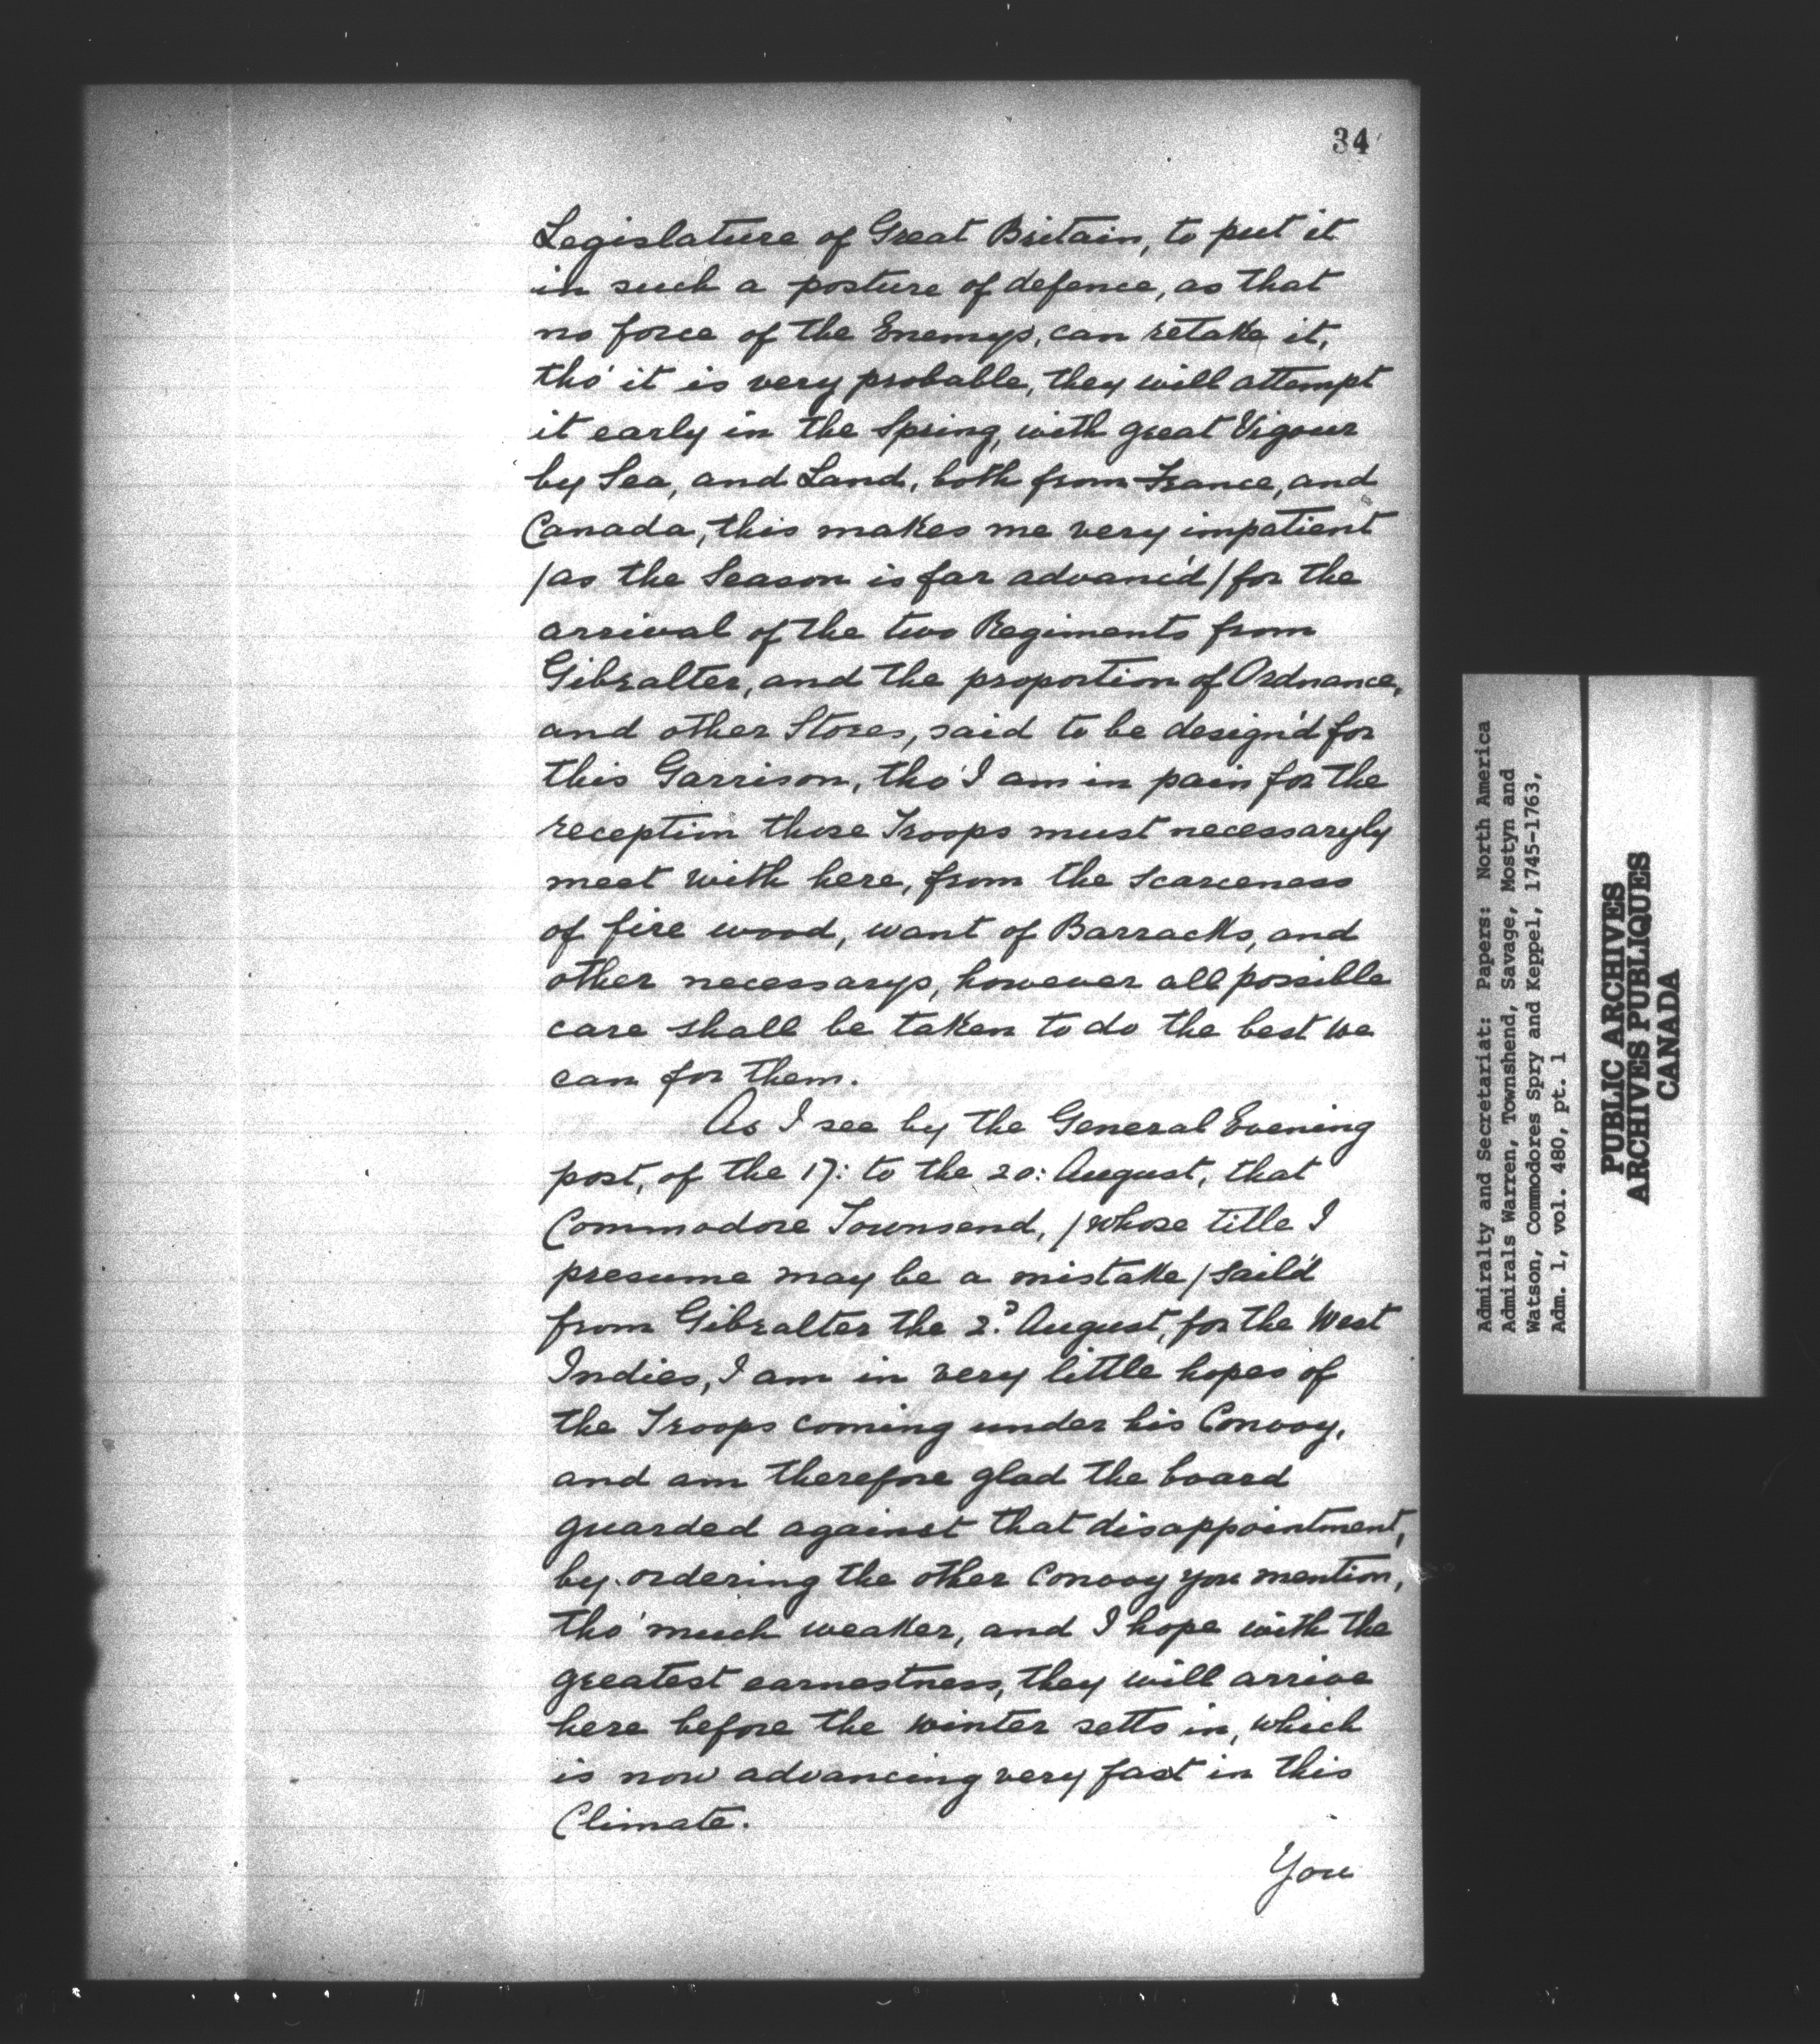 34
Legislature of Great Britain, to put it
in such a posture of defence, as that
no force of the Enemys, can retake it,
tho' it is very probable, they will attempt
it early in the Spring, with great Vigour
by Sea, and Land, both from France, and
Canada, this makes me very impatient
/as the Season is far advanc'd/ for the
arrival of the two Regiments from
Gibralter, and the proportion of Ordnance,
and other Stores, said to be design'd for
this Garrison, tho' I am in pain for the
reception those Troops must necessaryly
meet with here, from the scarceness
of fire wood, want of Barracks, and
other necessarys, however all possible
care shall be taken to do the best we
can for them.
As I see by the General Evening
post, of the 17: to the 20: August, that
Commodore Townsend, /whose title I
presume may be a mistake/ sail'd
from Gibralter the 2.d August, for the West
Indies, I am in very little hopes of
the Troops coming under his Convoy,
and am therefore glad the board
guarded against that disappointment,
by ordering the other Convoy you mention,
tho' much weaker, and I hope with the
greatest earnestness, they will arrive
here before the winter setts in, which
is now advancing very fast in this
Climate.
You
Admiralty and Secretariat: Papers: North America
Admirals Warren, Townshend, Savage, Mostyn and
Watson, Commodores Spry and Keppel, 1745-1763,
Adm. 1, vol. 480, pt. 1
PUBLIC ARCHIVES
ARCHIVES PUBLIQUES
CANADA